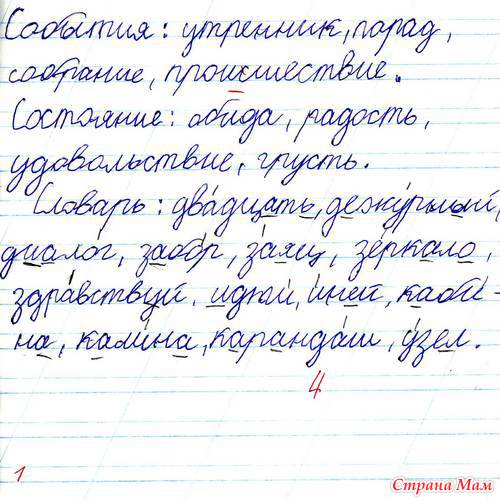 События: утренник, порад,
собрание, происшествие.
Состояние: обида, радость,
удовольствие, грусть.
Словарь: двадцать, дежурный,
диалог, забор, заяц, зеркало,
здравствуй, идной, иней, каби-
на, калина, карандаш, узел.
4
1
Страна Мам